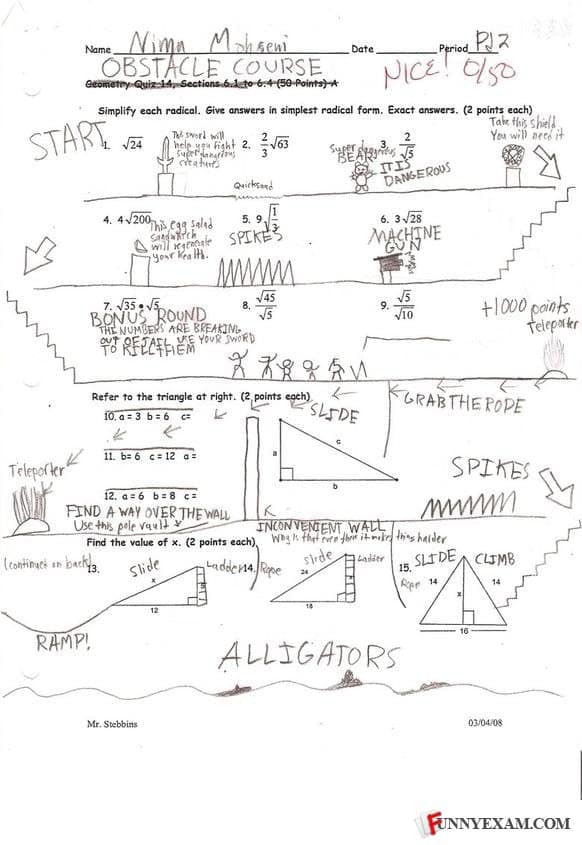 Name Nima Mohseni Date Period Pd 2
OBSTACLE COURSE
NICE! 0/50
Geometry Quiz 14, Sections 6.1 to 6.4 (50 Points) A
Simplify each radical. Give answers in simplest radical form. Exact answers. (2 points each)
START
1. √24
This sword will
help you fight
super dangerous
creatures
2. 2/3 √63
Super dangerous
BEAR
IT IS
DANGEROUS
3. 2/√5
Take this shield
You will need it
Quicksand
4. 4√200
This egg salad
sandwich
will regenerate
your health.
5. 9√1/3
SPIKES
6. 3√28
MACHINE
GUN
7. √35 • √5
BONUS ROUND
THE NUMBERS ARE BREAKING
OUT OF JAIL USE YOUR SWORD
TO KILL THEM
8. √45/√5
9. √5/√10
+1000 points
Teleporter
Refer to the triangle at right. (2 points each)
GRAB THE ROPE
10. a = 3 b = 6 c=
SLIDE
a
c
b
11. b= 6 c = 12 a =
Teleporter
SPIKES
12. a = 6 b = 8 c =
FIND A WAY OVER THE WALL
Use this pole vault
INCONVENIENT WALL
Why is that even there it makes things harder
Find the value of x. (2 points each)
(continue on back)
13.
Slide
x
Ladder
12
14.
Rope
Slide
24
Ladder
18
15.
SLIDE
CLIMB
Rope
14
x
14
16
RAMP!
ALLIGATORS
Mr. Stebbins 03/04/08
FUNNYEXAM.COM